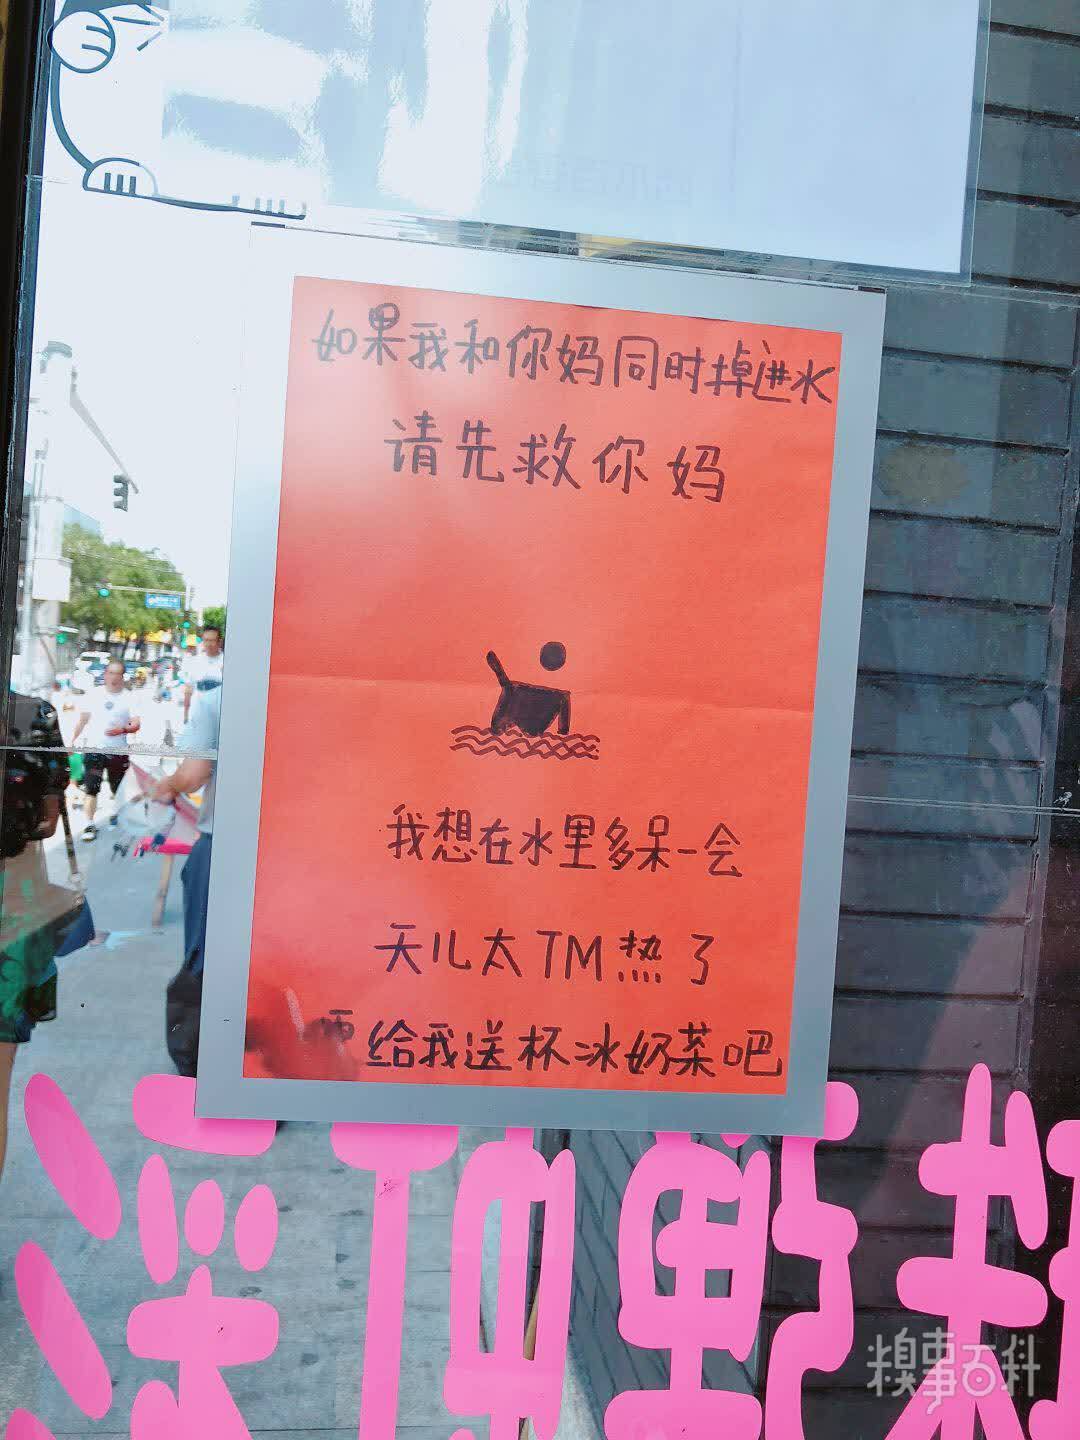 如果我和你妈同时掉进水
请先救你妈
我想在水里多呆一会
天儿太TM热了
给我送杯冰奶茶吧
糗事百科